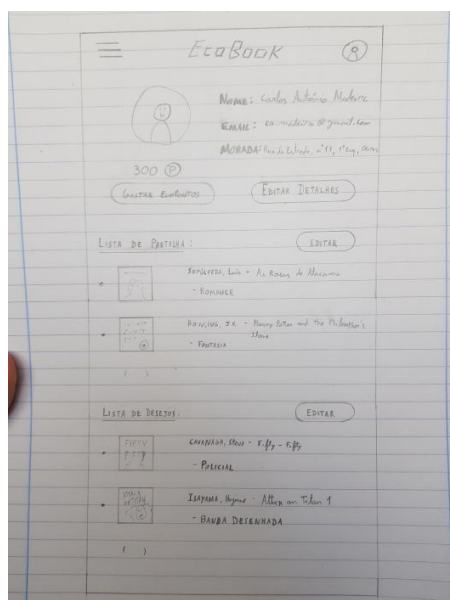 EcoBook
NOME: Carlos António Madeira
EMAIL: ca.madeira@gmail.com
MORADA: Rua do , nº11, 1º
300 P
GASTAR ECOPONTOS
EDITAR DETALHES
LISTA DE PARTILHA:
EDITAR
SEPÚLVEDA, Luis - As Rosas de Atacama
- ROMANCE
ROWLING, J.K. - Harry Potter and the Philosopher's
Stone
- FANTASIA
( )
LISTA DE DESEJOS:
EDITAR
FIFTY
FIFTY
CAVANAGH, Steve - Fifty - Fifty
- POLICIAL
ISAYAMA, Hajime - Attack on Titan 1
- BANDA DESENHADA
( )